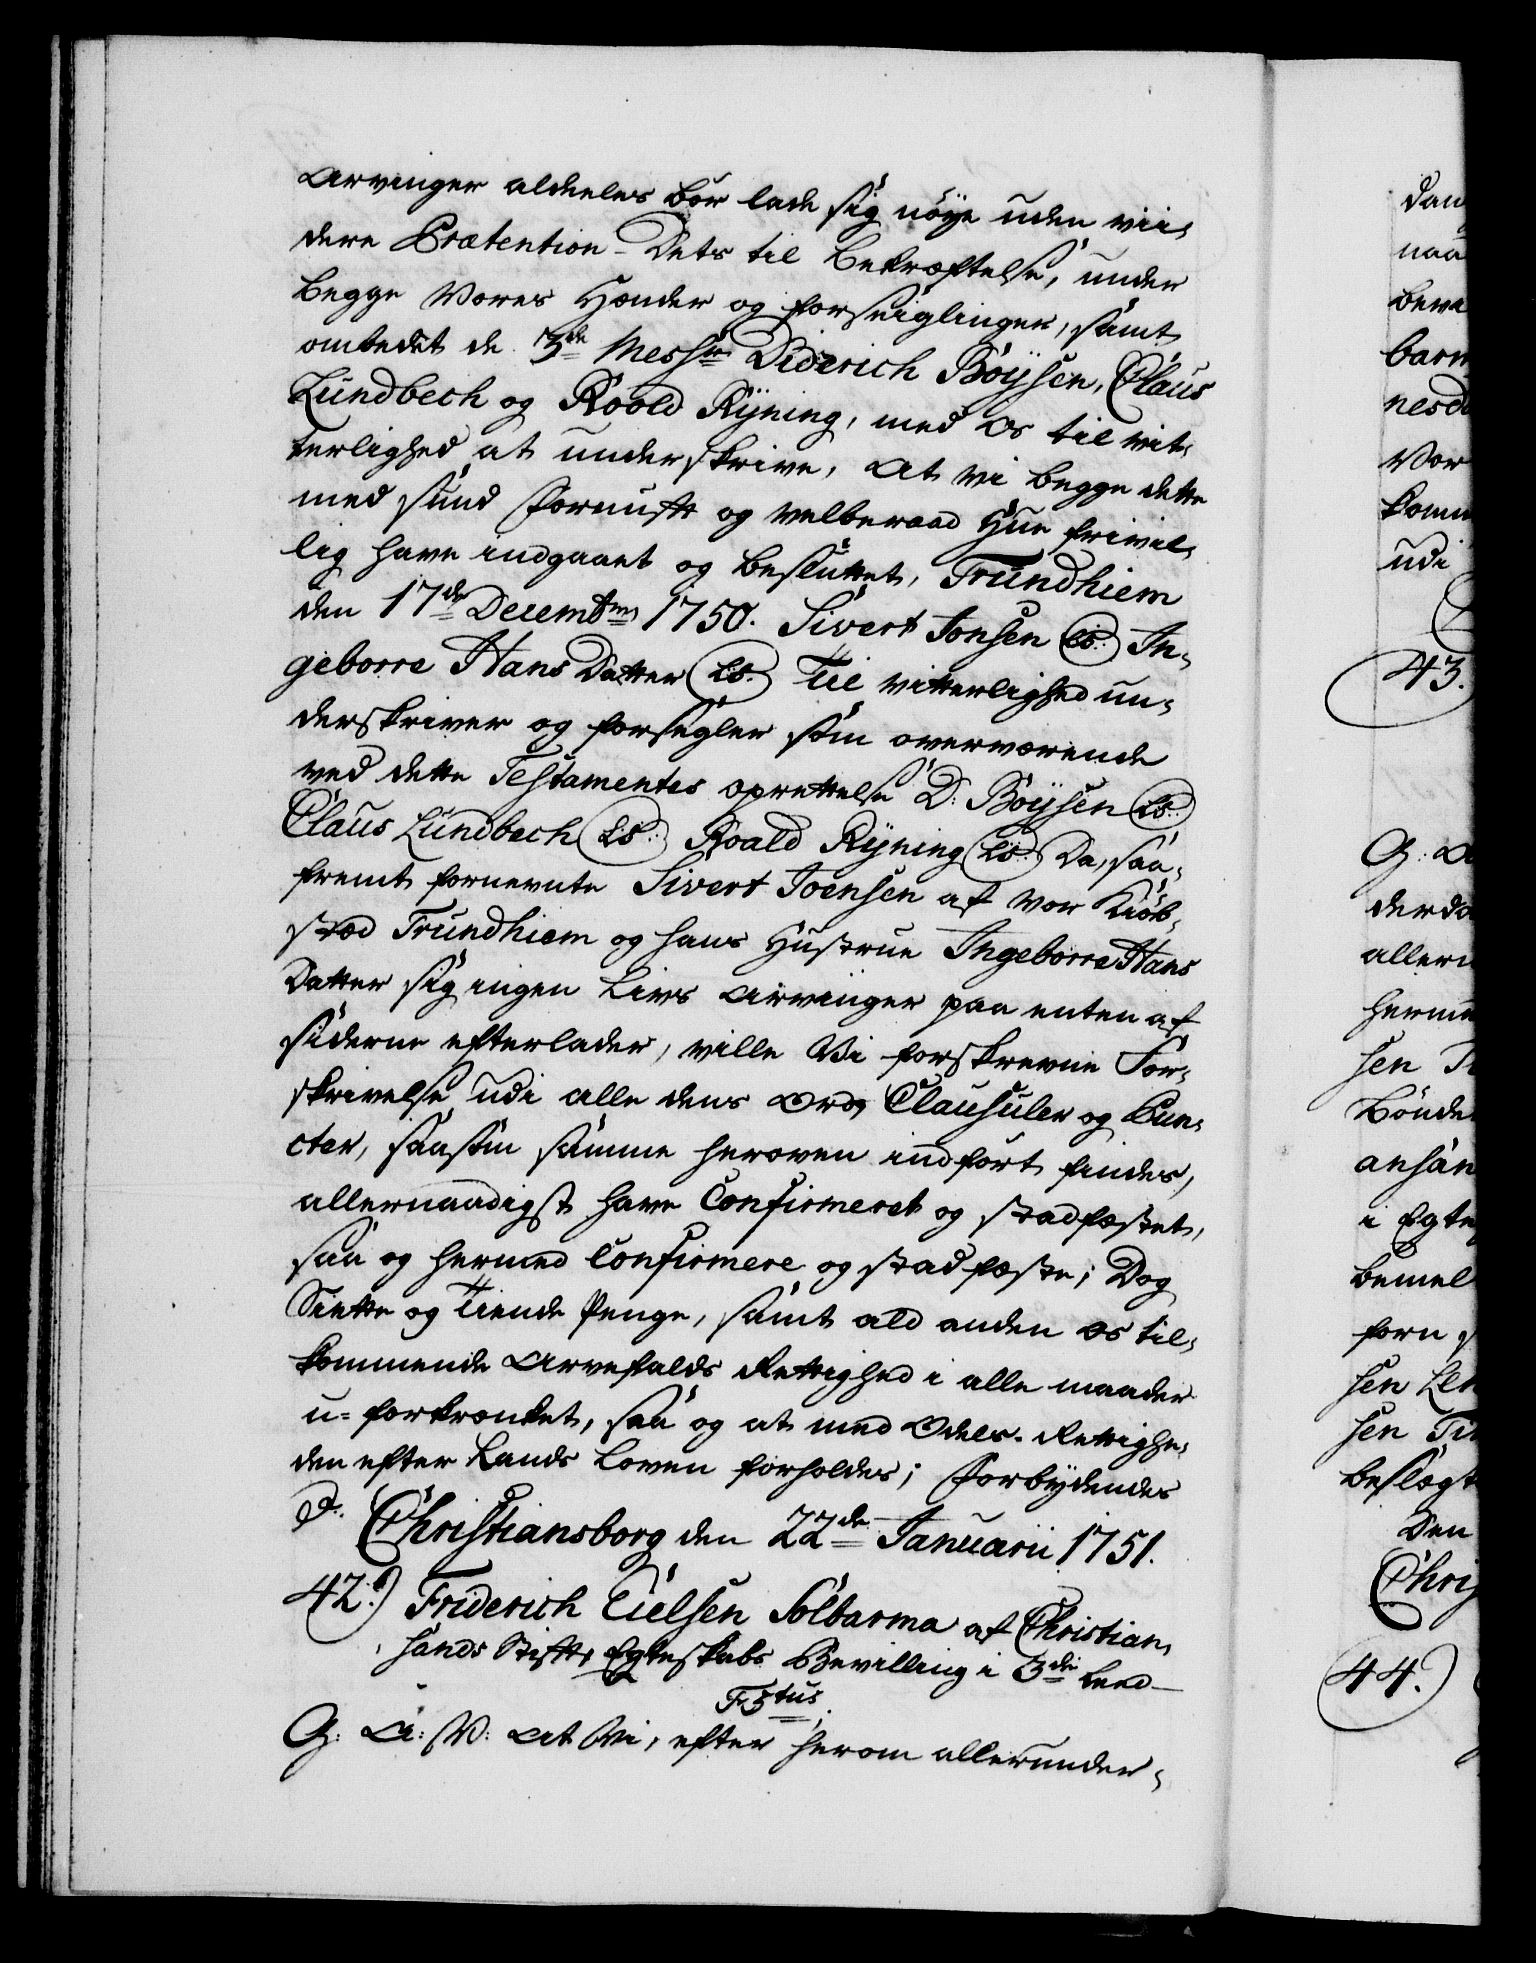 Arvinger aldeeles bør lade sig nøye uden vii-
dere Prætention - Dets til Bekræftelse, under
begge Vores Hænder og forseiglinger, samt
ombedet de 3de Messrs Diderich Böijsen, Claus
Lundbech og Roald Rÿning, med Os til vit-
terlighed at underskrive, At vi begge dette
med sund Fornuft og velberaad Hue frivil-
lig have indgaaet og besluttet, Trundhiem
den 17de Decembr: 1750. Sivert Jonsen LS. In-
geborre Hans Datter LS. Til vitterlighed un-
derskriver og forsegler som overværende
ved dette Testamentes oprettelse D: Böijsen LS.
Claus Lundbech LS. Roald Rÿning LS. Da, saa-
fremt fornevnte Sivert Joensen af vor Kiöb-
stæd Trundhiem og hans Hustrue Ingeborre Hans
Datter sig ingen Livs Arvinger paa enten af
siderne efterlader, ville Vi forskrevne For-
skrivelse udi alle dens Ord, Clausuler og Pun-
cter, saasom samme herover indført findes,
allernaadigst have Confirmeret og stadfæstet,
saa og hermed Confirmere og stadfæste; Dog
Siette og Tiende Penge, samt ald anden os til-
kommende Arvefalds Rettighed i alle maader
u-forkrænket, saa og at med Odels-Rettighe-
den efter Lands Loven forholdes; Forbÿdendes
&. Christiansborg den 22de Januarii 1751.
42.) Friderich Cielsen Solbarma af Christian-
sands Stift, Egteskabs Bevilling i 3die Leed
F3tus.
G: A: V: At Vi, efter herom allerunder-
Dan
naa
beva
barn
nesd
Vor
komm
udi
43.
G: A
derda
allern
herme
sen
Bønde
anhan
i Egte
bemel
forn
sen Len
sen
beslægt
Den
Chris
44.)